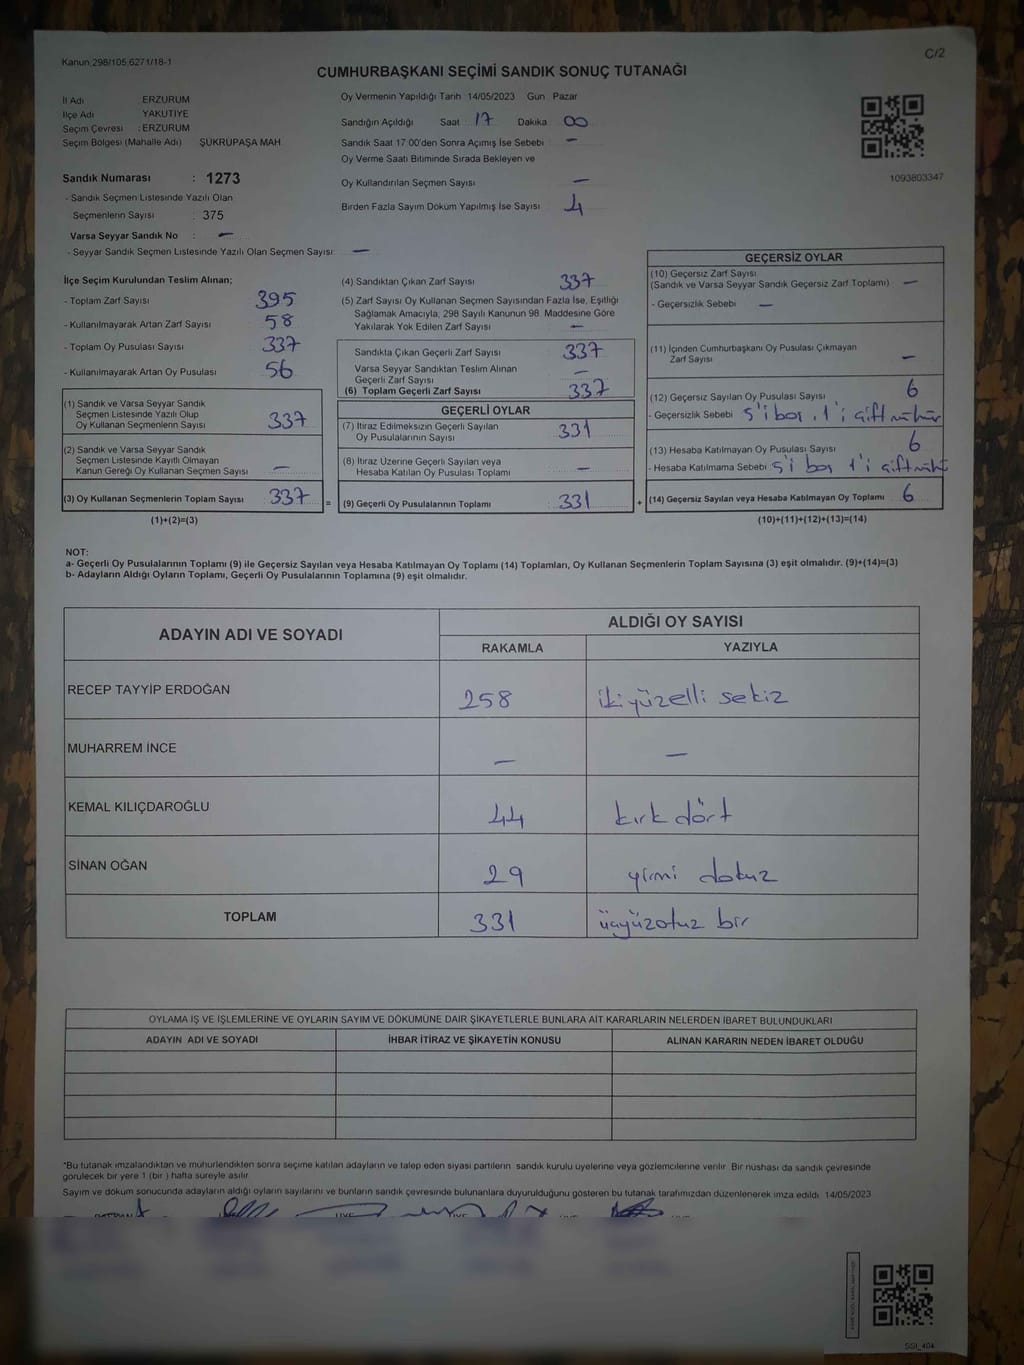 Kanun.298/105.6271/18-1
C/2
CUMHURBAŞKANI SEÇİMİ SANDIK SONUÇ TUTANAĞI
İl Adı ERZURUM
İlçe Adı YAKUTİYE
Seçim Çevresi : ERZURUM
Seçim Bölgesi (Mahalle Adı) ŞÜKRÜPAŞA MAH
Sandık Numarası : 1273
- Sandık Seçmen Listesinde Yazılı Olan
Seçmenlerin Sayısı : 375
Varsa Seyyar Sandık No : —
- Seyyar Sandık Seçmen Listesinde Yazılı Olan Seçmen Sayısı: —
Oy Vermenin Yapıldığı Tarih 14/05/2023 Gün Pazar
Sandığın Açıldığı Saat 17 Dakika 00
Sandık Saat 17 00'den Sonra Açımış İse Sebebi : —
Oy Verme Saati Bitiminde Sırada Bekleyen ve
Oy Kullandırılan Seçmen Sayısı —
Birden Fazla Sayım Döküm Yapılmış İse Sayısı 4
1093803347
İlçe Seçim Kurulundan Teslim Alınan;
- Toplam Zarf Sayısı 395
- Kullanılmayarak Artan Zarf Sayısı 58
- Toplam Oy Pusulası Sayısı 337
- Kullanılmayarak Artan Oy Pusulası 56
(1) Sandık ve Varsa Seyyar Sandık
Seçmen Listesinde Yazılı Olup
Oy Kullanan Seçmenlerin Sayısı 337
(2) Sandık ve Varsa Seyyar Sandık
Seçmen Listesinde Kayıtlı Olmayan
Kanun Gereği Oy Kullanan Seçmen Sayısı —
(3) Oy Kullanan Seçmenlerin Toplam Sayısı 337 =
(1)+(2)=(3)
(4) Sandıktan Çıkan Zarf Sayısı 337
(5) Zarf Sayısı Oy Kullanan Seçmen Sayısından Fazla İse, Eşitliği
Sağlamak Amacıyla, 298 Sayılı Kanunun 98. Maddesine Göre
Yakılarak Yok Edilen Zarf Sayısı —
Sandıkta Çıkan Geçerli Zarf Sayısı 337
Varsa Seyyar Sandıktan Teslim Alınan
Geçerli Zarf Sayısı —
(6) Toplam Geçerli Zarf Sayısı 337
GEÇERLİ OYLAR
(7) İtiraz Edilmeksizin Geçerli Sayılan
Oy Pusulalarının Sayısı 331
(8) İtiraz Üzerine Geçerli Sayılan veya
Hesaba Katılan Oy Pusulası Toplamı —
(9) Geçerli Oy Pusulalarının Toplamı : 331 +
GEÇERSİZ OYLAR
(10) Geçersiz Zarf Sayısı
(Sandık ve Varsa Seyyar Sandık Geçersiz Zarf Toplamı) —
- Geçersizlik Sebebi —
(11) İçinden Cumhurbaşkanı Oy Pusulası Çıkmayan
Zarf Sayısı —
(12) Geçersiz Sayılan Oy Pusulası Sayısı 6
- Geçersizlik Sebebi 5'i boş, 1'i çift mühür
(13) Hesaba Katılmayan Oy Pusulası Sayısı 6
- Hesaba Katılmama Sebebi 5'i boş 1'i çift mühü
(14) Geçersiz Sayılan veya Hesaba Katılmayan Oy Toplamı 6
(10)+(11)+(12)+(13)=(14)
NOT:
a- Geçerli Oy Pusulalarının Toplamı (9) ile Geçersiz Sayılan veya Hesaba Katılmayan Oy Toplamı (14) Toplamları, Oy Kullanan Seçmenlerin Toplam Sayısına (3) eşit olmalıdır. (9)+(14)=(3)
b- Adayların Aldığı Oyların Toplamı, Geçerli Oy Pusulalarının Toplamına (9) eşit olmalıdır.
ADAYIN ADI VE SOYADI
ALDIĞI OY SAYISI
RAKAMLA YAZIYLA
RECEP TAYYİP ERDOĞAN 258 ikiyüzelli sekiz
MUHARREM İNCE — —
KEMAL KILIÇDAROĞLU 44 kırk dört
SİNAN OĞAN 29 yirmi dokuz
TOPLAM 331 üçyüzotuz bir
OYLAMA İŞ VE İŞLEMLERİNE VE OYLARIN SAYIM VE DÖKÜMÜNE DAİR ŞİKAYETLERLE BUNLARA AİT KARARLARIN NELERDEN İBARET BULUNDUKLARI
ADAYIN ADI VE SOYADI İHBAR İTİRAZ VE ŞİKAYETİN KONUSU ALINAN KARARIN NEDEN İBARET OLDUĞU
*Bu tutanak imzalandıktan ve mühürlendikten sonra seçime katılan adayların ve talep eden siyasi partilerin sandık kurulu üyelerine veya gözlemcilerine verilir. Bir nüshası da sandık çevresinde
görülecek bir yere 1 (bir) hafta süreyle asılır
Sayım ve döküm sonucunda adayların aldığı oyların sayılarını ve bunların sandık çevresinde bulunanlara duyurulduğunu gösteren bu tutanak tarafımızdan düzenlenerek imza edildi. 14/05/2023